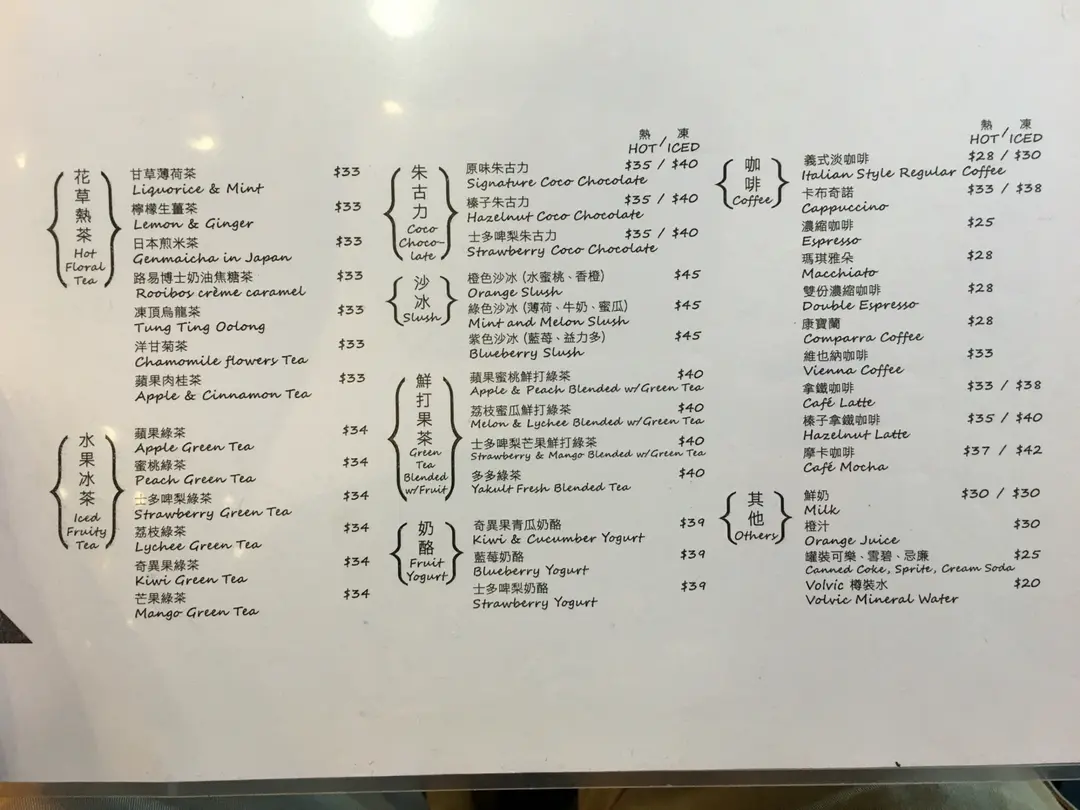 花草熱茶
Hot
Floral
Tea
甘草薄荷茶 $33
Liquorice & Mint
檸檬生薑茶 $33
Lemon & Ginger
日本煎米茶 $33
Genmaicha in Japan
路易博士奶油焦糖茶 $33
Rooibos crème caramel
凍頂烏龍茶 $33
Tung Ting Oolong
洋甘菊茶 $33
Chamomile flowers Tea
蘋果肉桂茶 $33
Apple & Cinnamon Tea
水果冰茶
Iced
Fruity
Tea
蘋果綠茶 $34
Apple Green Tea
蜜桃綠茶 $34
Peach Green Tea
士多啤梨綠茶 $34
Strawberry Green Tea
荔枝綠茶 $34
Lychee Green Tea
奇異果綠茶 $34
Kiwi Green Tea
芒果綠茶 $34
Mango Green Tea
朱古力
Coco
Choco-
late
熱 / 凍
HOT / ICED
原味朱古力 $35 / $40
Signature Coco Chocolate
榛子朱古力 $35 / $40
Hazelnut Coco Chocolate
士多啤梨朱古力 $35 / $40
Strawberry Coco Chocolate
沙冰
Slush
橙色沙冰 (水蜜桃、香橙) $45
Orange Slush
綠色沙冰 (薄荷、牛奶、蜜瓜) $45
Mint and Melon Slush
紫色沙冰 (藍莓、益力多) $45
Blueberry Slush
鮮打果茶
Green
Tea
Blended
w/Fruit
蘋果蜜桃鮮打綠茶 $40
Apple & Peach Blended w/Green Tea
荔枝蜜瓜鮮打綠茶 $40
Melon & Lychee Blended w/Green Tea
士多啤梨芒果鮮打綠茶 $40
Strawberry & Mango Blended w/Green Tea
多多綠茶 $40
Yakult Fresh Blended Tea
奶酪
Fruit
Yogurt
奇異果青瓜奶酪 $39
Kiwi & Cucumber Yogurt
藍莓奶酪 $39
Blueberry Yogurt
士多啤梨奶酪 $39
Strawberry Yogurt
咖啡
Coffee
熱 / 凍
HOT / ICED
義式淡咖啡 $28 / $30
Italian Style Regular Coffee
卡布奇諾 $33 / $38
Cappuccino
濃縮咖啡 $25
Espresso
瑪琪雅朵 $28
Macchiato
雙份濃縮咖啡 $28
Double Espresso
康寶蘭 $28
Comparra Coffee
維也納咖啡 $33
Vienna Coffee
拿鐵咖啡 $33 / $38
Café Latte
榛子拿鐵咖啡 $35 / $40
Hazelnut Latte
摩卡咖啡 $37 / $42
Café Mocha
其他
Others
鮮奶 $30 / $30
Milk
橙汁 $30
Orange Juice
罐裝可樂、雪碧、忌廉 $25
Canned Coke, Sprite, Cream Soda
Volvic 樽裝水 $20
Volvic Mineral Water